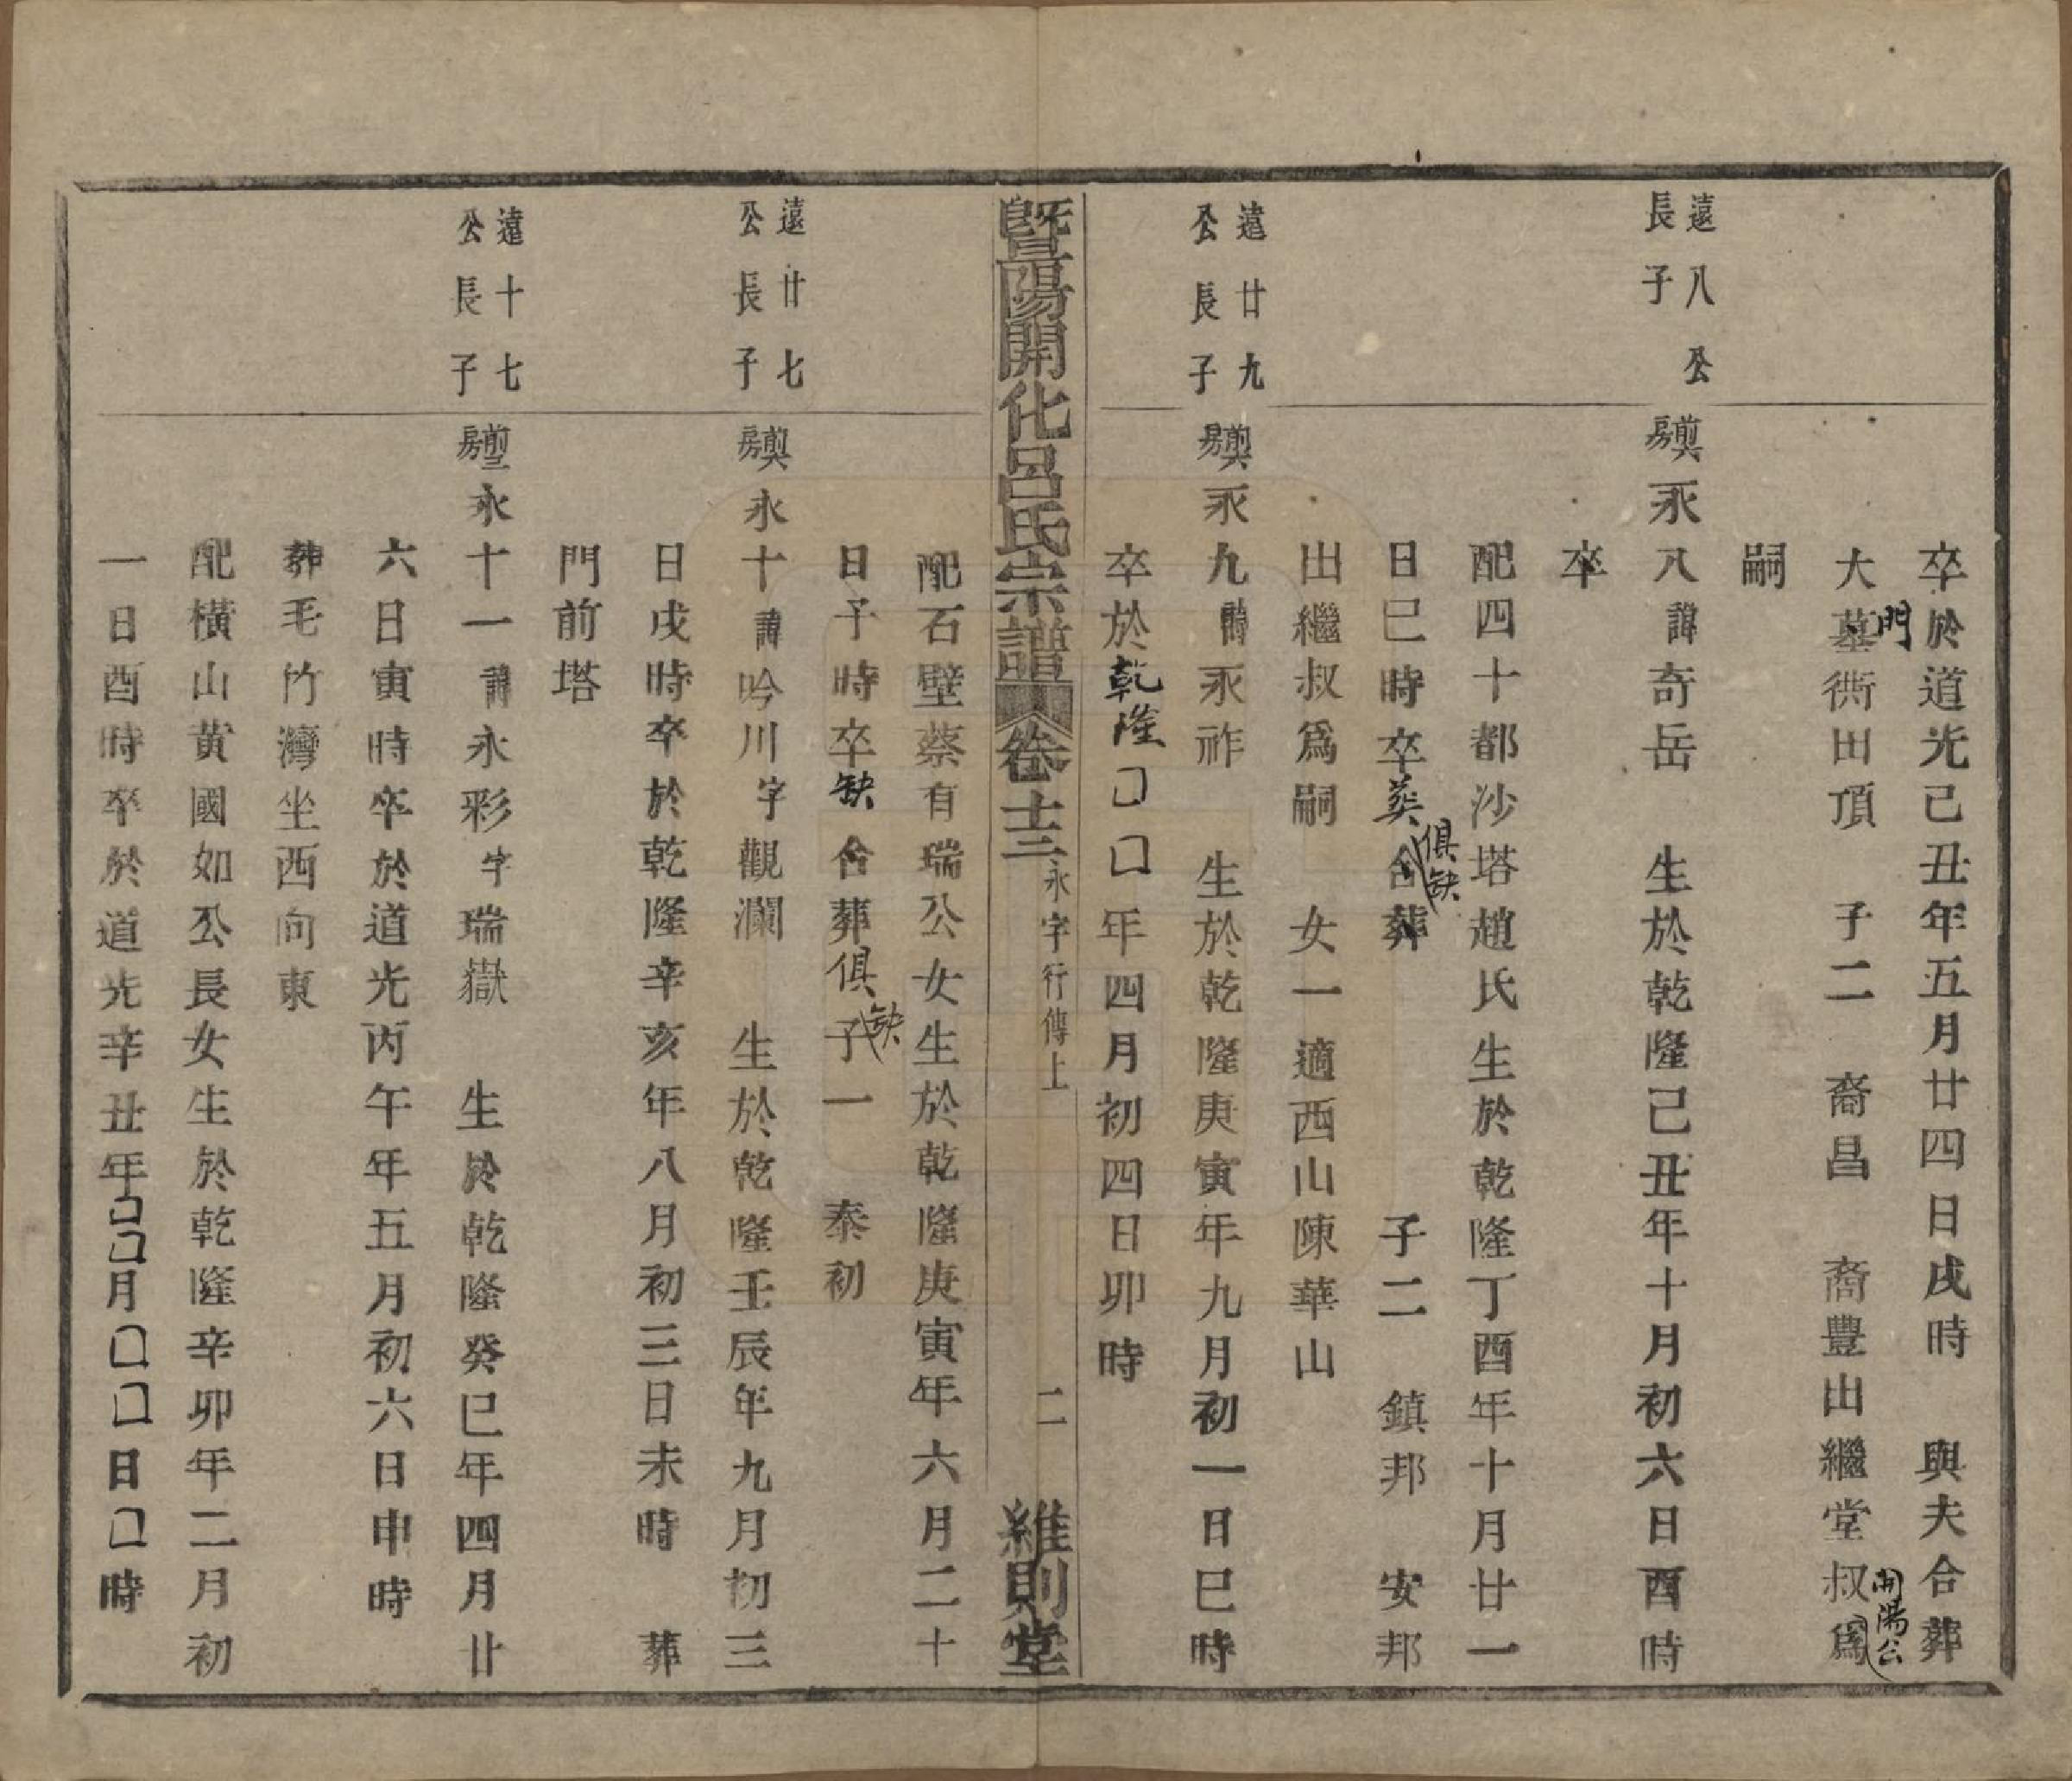 卒於道光己丑年五月廿四日戌時　與夫合葬
大門墓衖田頂　子二　裔昌　裔豐出繼堂叔開陽公爲
嗣
遠八公
長子
奠房永八諱奇岳　生於乾隆己丑年十月初六日酉時
卒
配四十都沙塔趙氏生於乾隆丁酉年十月廿一
日巳時卒葬俱缺合葬　子二　鎮邦　安邦
出繼叔爲嗣　女一適西山陳華山
遠廿九
公長子
奠房永九諱永祚　生於乾隆庚寅年九月初一日巳時
卒於乾隆口口年四月初四日卯時
暨陽開化呂氏宗譜　卷十三　永字行傳上　二　維則堂
配石壁蔡有瑞公女生於乾隆庚寅年六月二十
日子時卒缺合葬俱缺子一　泰初
遠廿七
公長子
奠房永十諱吟川字觀瀾　生於乾隆壬辰年九月初三
日戌時卒於乾隆辛亥年八月初三日未時　葬
門前塔
遠十七
公長子
房永十一諱永彩字瑞嶽　生於乾隆癸巳年四月廿
六日寅時卒於道光丙午年五月初六日申時
葬毛竹灣坐西向東
配橫山黃國如公長女生於乾隆辛卯年二月初
一日酉時卒於道光辛丑年口口月口口日口時